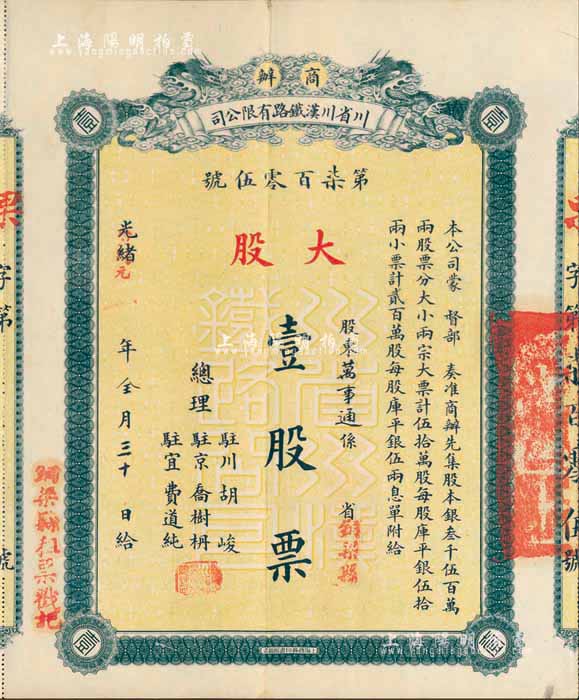 上海陽明拍賣
商辦
川省川漢鐵路有限公司
第柒百零伍號
大股
本公司蒙 督部 奏准商辦先集股本銀叁千伍百萬
兩股票分大小兩宗大票計伍拾萬股每股庫平銀伍拾
兩小票計貳百萬股每股庫平銀伍兩息單附給
股東萬事通係 省銅梁縣
壹股票
總理
駐川胡峻
駐京喬樹枏
駐宜費道純
光緒元年 月三十日給
字第
號
字第柒百零伍號